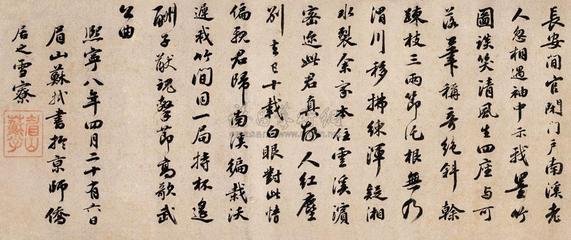 長安閒官閉門戶南溪老
人忽相過袖中示我墨竹
圖談笑清風生四座與可
落筆稱奇絕斜榦
疎枝三兩節託根無乃
渭川移拂練渾疑湘
水裂余家本住雲溪濱
密迩此君真故人紅塵
別去已十載白眼對此情
偏親君歸南溪徧栽沃
遲栽竹間同一局持杯遙
酬子猷魂擊節高歌武
公曲
熙寧八年四月二十有六日
眉山蘇軾書於京師僑
居之雪寮
眉山蘇軾